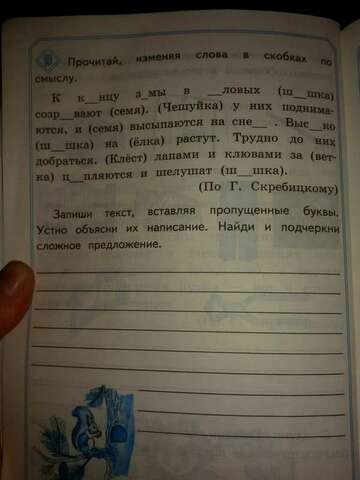 Прочитай, изменяя слова в скобках по
смыслу.
К к__нцу з_мы в __ловых (ш__шка)
созр__вают (семя). (Чешуйка) у них поднима-
ются, и (семя) высыпаются на сне__ . Выс__ко
(ш__шка) на (ёлка) растут. Трудно до них
добраться. (Клёст) лапами и клювами за (вет-
ка) ц__пляются и шелушат (ш__шка).
(По Г. Скребицкому)
Запиши текст, вставляя пропущенные буквы.
Устно объясни их написание. Найди и подчеркни
сложное предложение.